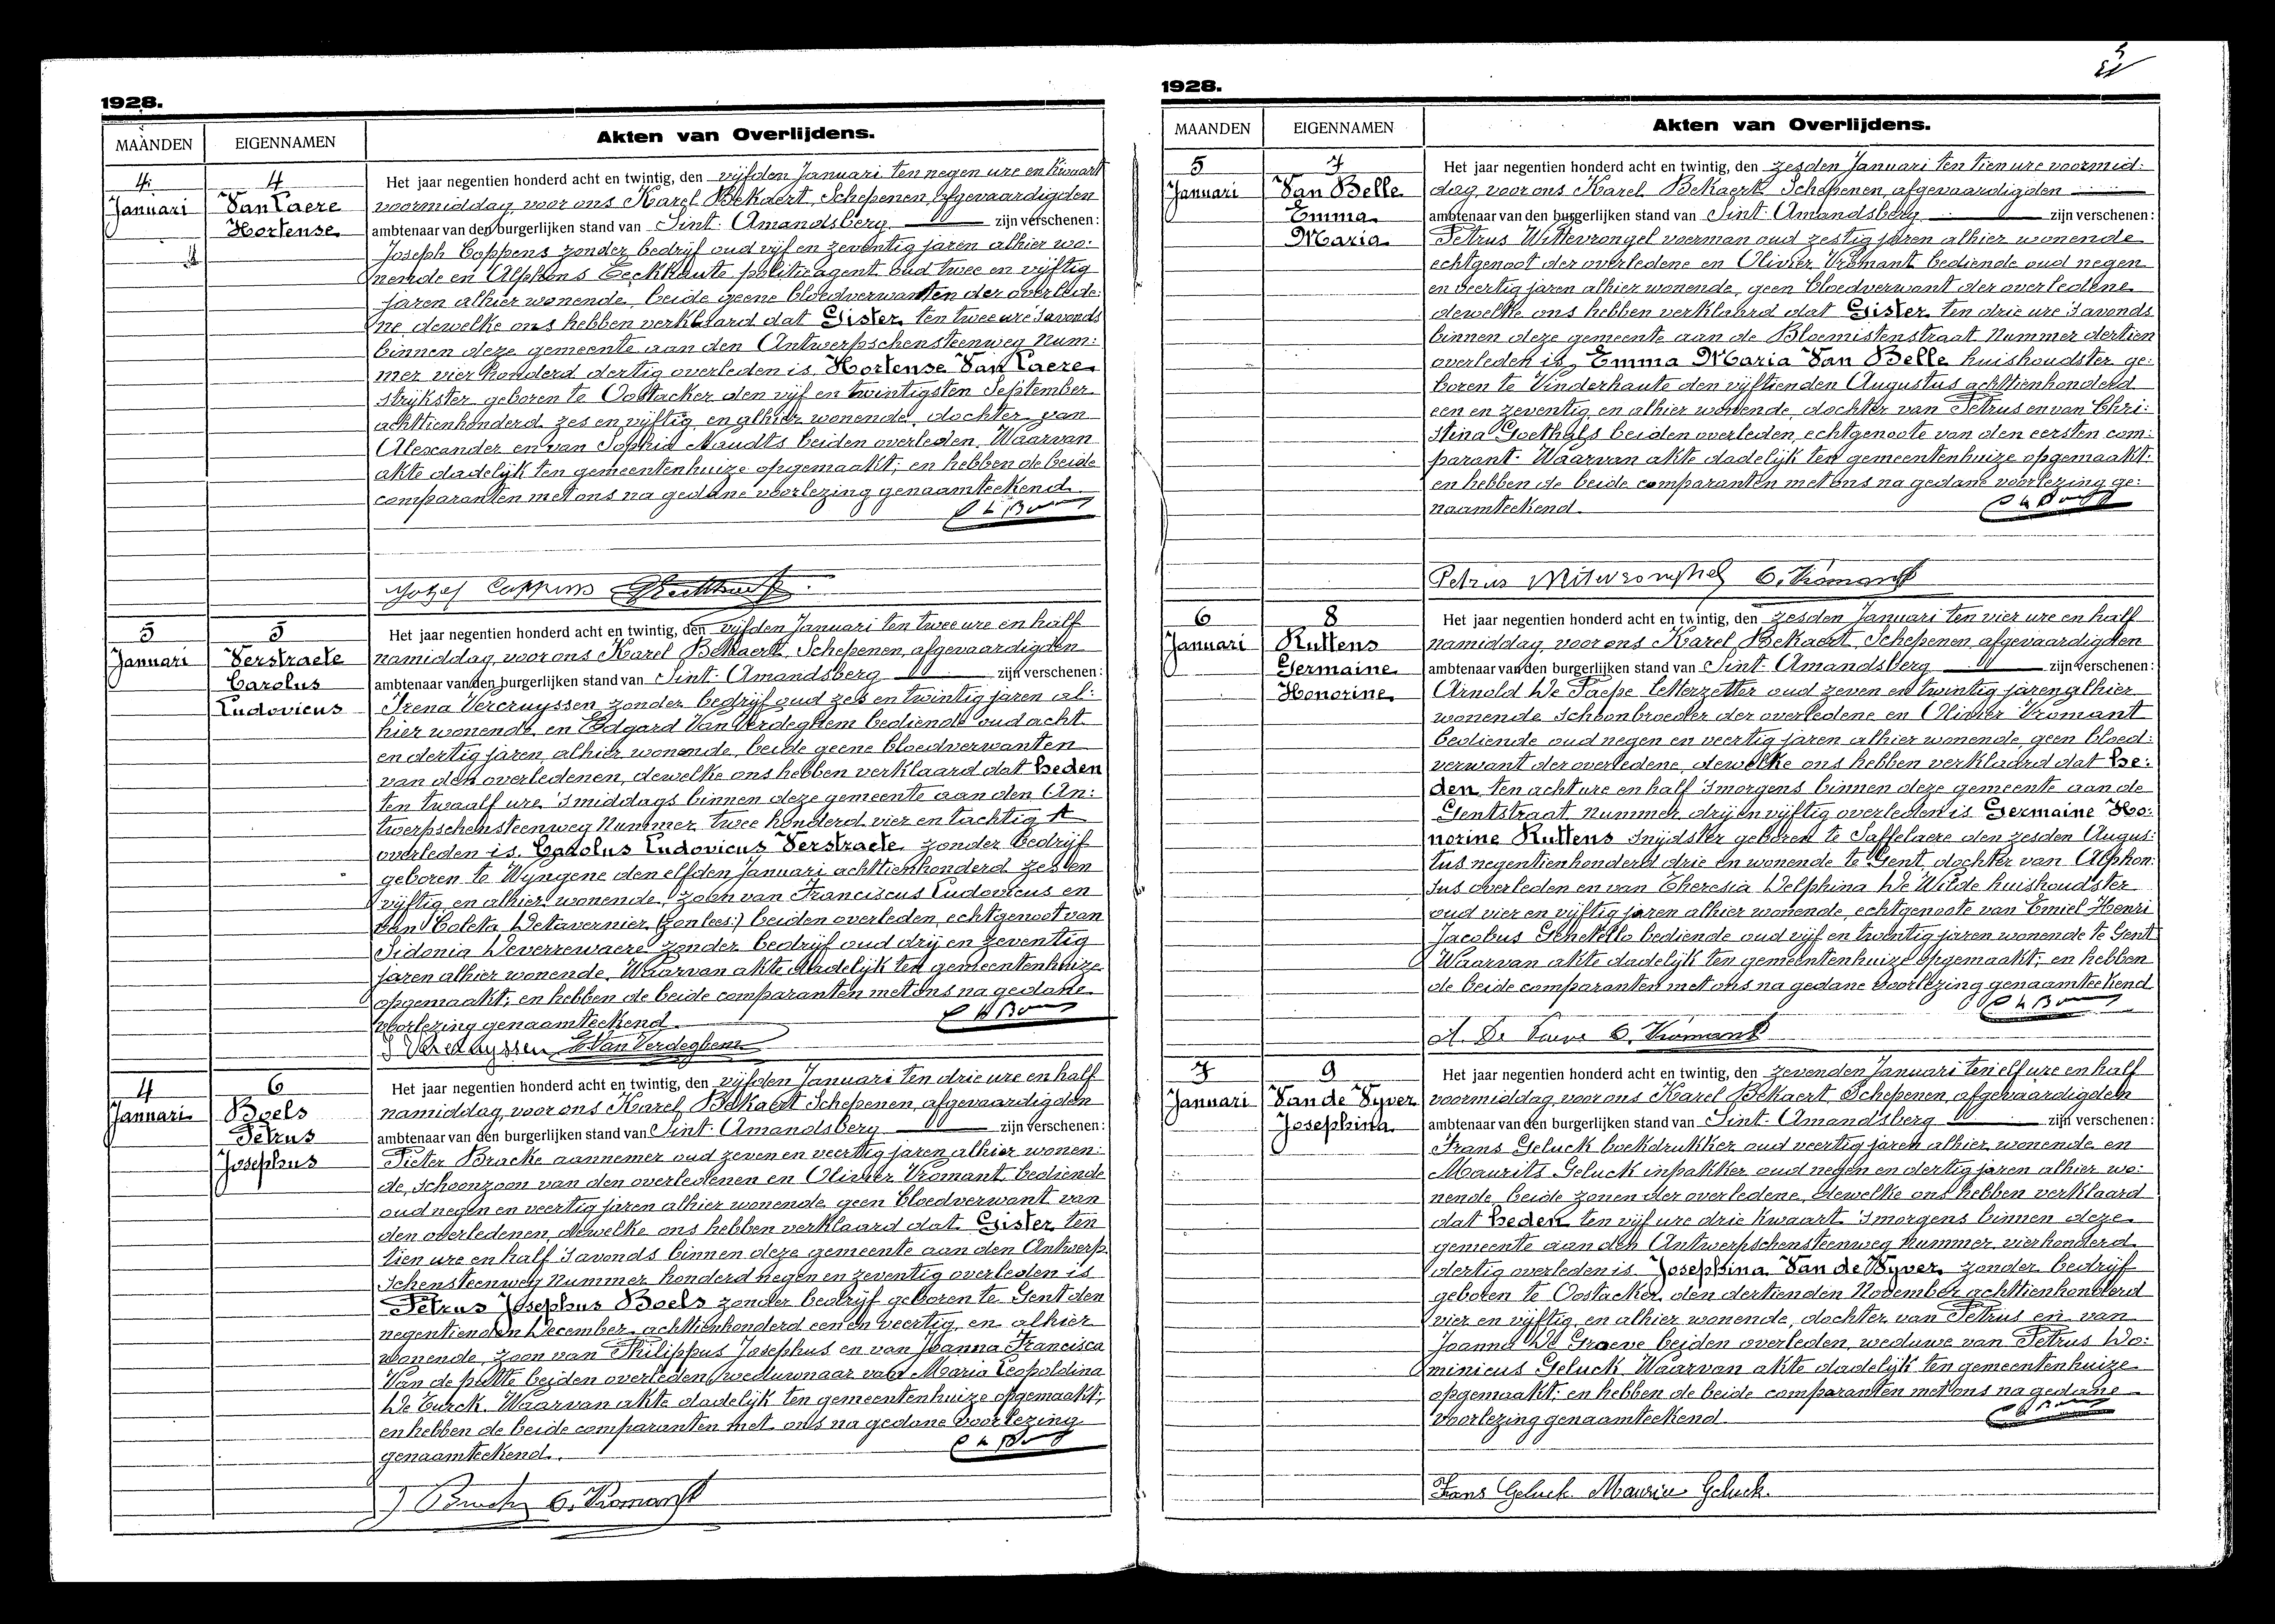 1928.
MAANDEN
EIGENNAMEN
Akten van Overlijdens.
4
Januari
4
Van Laere
Hortense
Het jaar negentien honderd acht en twintig, den vijfden Januari ten negen ure en kwaart
voormiddag, voor ons Karel Bekaert, Schepenen, afgevaardigden
ambtenaar van den burgerlijken stand van Sint-Amandsberg zijn verschenen:
Joseph Coppens zonder bedrijf oud vijf en zeventig jaren alhier wo:
nende en Alphons Eeckhaute politieagent oud twee en vijftig
jaren alhier wonende, beide geene bloedverwanten der overlede:
ne dewelke ons hebben verklaard dat Gister, ten twee ure 's avonds
binnen deze gemeente aan den Antwerpschensteenweg Num:
mer vier honderd dertig overleden is, Hortense Van Laere,
strijkster geboren te Oostacker den vijf en twintigsten September
achttienhonderd zes en vijftig en alhier wonende, dochter van
Alexander en van Sophia Naudts beiden overleden, Waarvan
akte dadelijk ten gemeentenhuize opgemaakt; en hebben de beide
comparanten met ons na gedane voorlezing genaamteekend.
Jozef Coppens
5
Januari
5
Verstraete
Carolus
Ludovicus
Het jaar negentien honderd acht en twintig, den vijfden Januari ten twee ure en half
namiddag, voor ons Karel Bekaert, Schepenen, afgevaardigden
ambtenaar van den burgerlijken stand van Sint-Amandsberg zijn verschenen:
Irena Vercruyssen zonder bedrijf oud zes en twintig jaren al:
hier wonende, en Edgard Van Verdeghem bediende oud acht
en dertig jaren, alhier wonende, beide geene bloedverwanten
van den overledenen, dewelke ons hebben verklaard dat heden
ten twaalf ure 's middags binnen deze gemeente aan den An:
twerpschensteenweg Nummer twee honderd vier en tachtig A
overleden is, Carolus Ludovicus Verstraete, zonder bedrijf
geboren te Wyngene den elfden Januari achttienhonderd zes en
vijftig en alhier wonende, zoon van Franciscus Ludovicus en
van Coleta Detavernier (zonlees:) beiden overleden, echtgenoot van
Sidonia Deverrewaere zonder bedrijf oud drij en zeventig
jaren alhier wonende, Waarvan akte dadelijk ten gemeentenhuize
opgemaakt; en hebben de beide comparanten met ons na gedane
voorlezing genaamteekend.
I Vercruyssen E. Van Verdeghem
4
Januari
6
Boels
Petrus
Josephus
Het jaar negentien honderd acht en twintig, den vijfden Januari ten drie ure en half
namiddag, voor ons Karel Bekaert Schepenen, afgevaardigden
ambtenaar van den burgerlijken stand van Sint-Amandsberg zijn verschenen:
Pieter Bracke aannemer oud zeven en veertig jaren alhier wonen:
de, schoonzoon van den overledenen en Olivier Vromant bediende
oud negen en veertig jaren alhier wonende geen bloedverwant van
den overledenen, dewelke ons hebben verklaard dat Gister, ten
tien ure en half 's avonds binnen deze gemeente aan den Antwerp:
schensteenweg Nummer honderd negen en zeventig overleden is
Petrus Josephus Boels zonder bedrijf geboren te Gent den
negentienden December achttienhonderd een en veertig, en alhier
wonende, zoon van Philippus Josephus en van Joanna Francisca
Van de putte beiden overleden, weduwnaar van Maria Leopoldina
De Turck. Waarvan akte dadelijk ten gemeentenhuize opgemaakt;
en hebben de beide comparanten met ons na gedane voorlezing
genaamteekend.
O. Vromant
1928.
MAANDEN
EIGENNAMEN
Akten van Overlijdens.
5
Januari
7
Van Belle
Emma
Maria
Het jaar negentien honderd acht en twintig, den zesden Januari ten tien ure voormid:
dag, voor ons Karel Bekaert Schepenen, afgevaardigden
ambtenaar van den burgerlijken stand van Sint-Amandsberg zijn verschenen:
Petrus Wittevrongel voerman oud zestig jaren alhier wonende
echtgenoot der overledene en Olivier Vromant bediende oud negen
en veertig jaren alhier wonende, geen bloedverwant der overledene
dewelke ons hebben verklaard dat Gister, ten drie ure 's avonds
binnen deze gemeente aan de Bloemistenstraat Nummer dertien
overleden is, Emma Maria Van Belle huishoudster ge:
boren te Vinderhaute den vijftienden Augustus achttienhonderd
een en zeventig en alhier wonende, dochter van Petrus en van Chri:
stina Goethals beiden overleden, echtgenoote van den eersten com:
parant. Waarvan akte dadelijk ten gemeentenhuize opgemaakt:
en hebben de beide comparanten met ons na gedane voorlezing ge:
naamteekend.
Petrus Witevronghel O. Vromant
6
Januari
8
Ruttens
Germaine
Honorine
Het jaar negentien honderd acht en twintig, den zesden Januari ten vier ure en half
namiddag, voor ons Karel Bekaert, Schepenen, afgevaardigden
ambtenaar van den burgerlijken stand van Sint-Amandsberg zijn verschenen:
Arnold De Paepe letterzetter oud zeven en twintig jaren alhier
wonende schoonbroeder der overledene en Olivier Vromant
bediende oud negen en veertig jaren alhier wonende, geen bloed:
verwant der overledene, dewelke ons hebben verklaard dat he:
den, ten acht ure en half 's morgens binnen deze gemeente aan de
Gentstraat Nummer drij en vijftig overleden is Germaine Ho:
norine Ruttens snijdster geboren te Saffelaere den zesden Augus:
tus negentienhonderd drie en wonende te Gent, dochter van Alphon:
sus overleden en van Theresia Delphina De Wilde huishoudster
oud vier en vijftig jaren alhier wonende, echtgenoote van Emiel Henri
Jacobus Ghetello bediende oud vijf en twintig jaren wonende te Gent
Waarvan akte dadelijk ten gemeentenhuize opgemaakt; en hebben
de beide comparanten met ons na gedane voorlezing genaamteekend
A. De O. Vromant
7
Januari
9
Van de Vyver
Josephina
Het jaar negentien honderd acht en twintig, den zevenden Januari ten elf ure en half
voormiddag, voor ons Karel Bekaert Schepenen, afgevaardigden
ambtenaar van den burgerlijken stand van Sint-Amandsberg zijn verschenen:
Frans Geluck boekdrukker oud veertig jaren alhier wonende en
Maurits Geluck inpakker oud negen en dertig jaren alhier wo:
nende, beide zonen der overledene, dewelke ons hebben verklaard
dat heden, ten vijf ure drie kwaart 's morgens binnen deze
gemeente aan den Antwerpschensteenweg Nummer vierhonderd
dertig overleden is, Josephina Van de Vyver, zonder bedrijf
geboren te Oostacker den dertienden November achttienhonderd
vier en vijftig en alhier wonende, dochter van Petrus en van
Joanna De Graeve beiden overleden, weduwe van Petrus Do:
minicus Geluck. Waarvan akte dadelijk ten gemeentenhuize
opgemaakt; en hebben de beide comparanten met ons na gedane
voorlezing genaamteekend.
Frans Geluck Maurice Geluck.